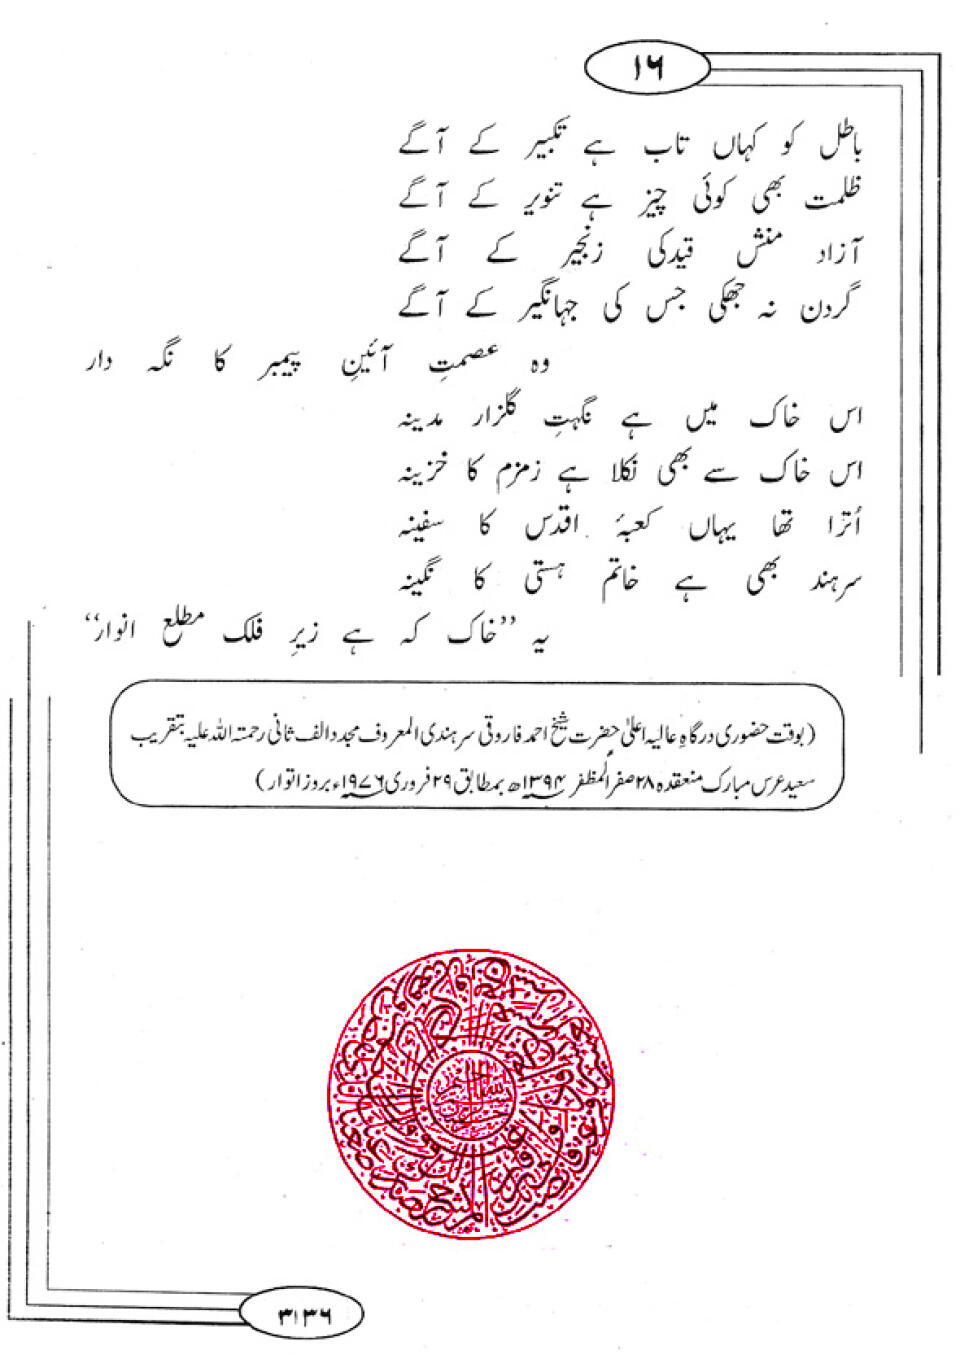 ۱۶
باطل کو کہاں تاب ہے تکبیر کے آگے
ظلمت بھی کوئی چیز ہے تنویر کے آگے
آزاد منش قیدکی زنجیر کے آگے
گردن نہ جھکی جس کی جہانگیر کے آگے
وہ عصمتِ آئینِ پیمبر کا نگہ دار
اس خاک میں ہے نگہتِ گلزار مدینہ
اس خاک سے بھی نکلا ہے زمزم کا خزینہ
اُترا تھا یہاں کعبۂ اقدس کا سفینہ
سرہند بھی ہے خاتم ہستی کا نگینہ
یہ ”خاک کہ ہے زیرِ فلک مطلع انوار“
(بوقت حضوری درگاہِ عالیہ اعلیٰ حضرت شیخ احمد فاروقی سرہندی المعروف مجدد الف ثانی رحمتہ اللہ علیہ بتقریب
سعید عرس مبارک منعقدہ ۲۸ صفر المظفر ۱۳۹۴ھ بمطابق ۲۹ فروری ۱۹۷۶ء بروز اتوار)
۳۱۳۶